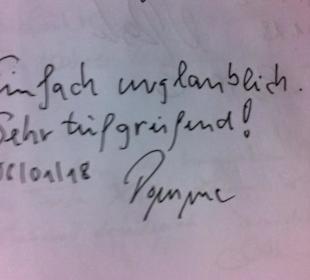 Einfach unglaublich.
Sehr tiefgreifend!
/01/18